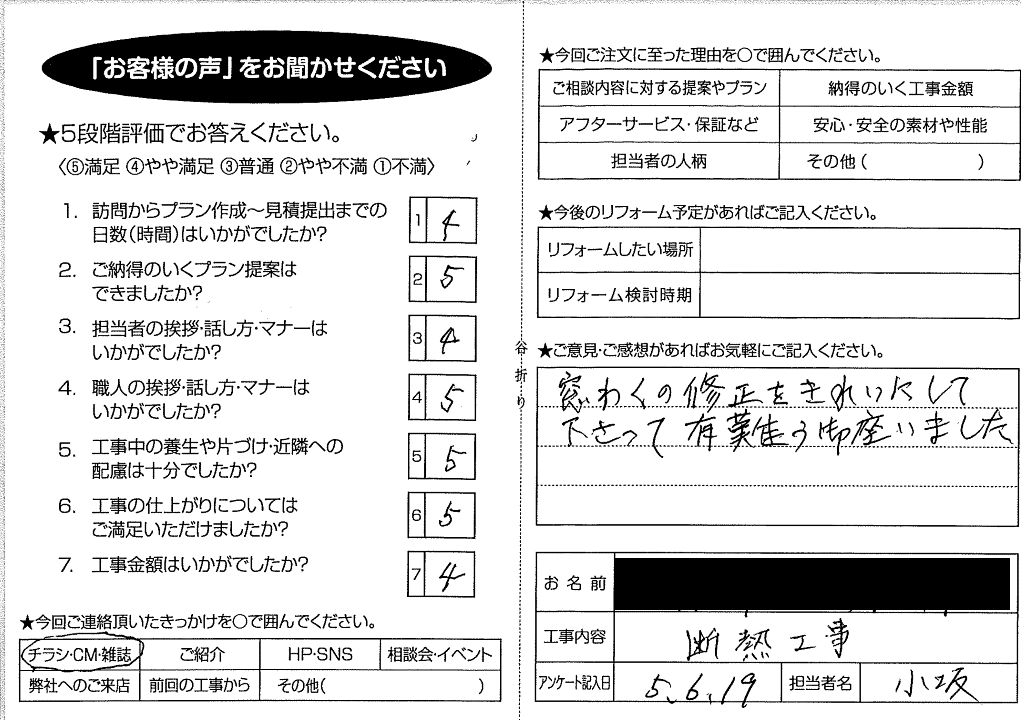 「お客様の声」をお聞かせください
★5段階評価でお答えください。
〈⑤満足 ④やや満足 ③普通 ②やや不満 ①不満〉
1. 訪問からプラン作成〜見積提出までの
日数(時間)はいかがでしたか?
1 4
2. ご納得のいくプラン提案は
できましたか?
2 5
3. 担当者の挨拶・話し方・マナーは
いかがでしたか?
3 4
4. 職人の挨拶・話し方・マナーは
いかがでしたか?
4 5
5. 工事中の養生や片づけ・近隣への
配慮は十分でしたか?
5 5
6. 工事の仕上がりについては
ご満足いただけましたか?
6 5
7. 工事金額はいかがでしたか?
7 4
★今回ご連絡頂いたきっかけを○で囲んでください。
チラシ・CM・雑誌 ご紹介 HP・SNS 相談会・イベント
弊社へのご来店 前回の工事から その他( )
谷折り
★今回ご注文に至った理由を○で囲んでください。
ご相談内容に対する提案やプラン 納得のいく工事金額
アフターサービス・保証など 安心・安全の素材や性能
担当者の人柄 その他( )
★今後のリフォーム予定があればご記入ください。
リフォームしたい場所
リフォーム検討時期
★ご意見・ご感想があればお気軽にご記入ください。
窓わくの修正をきれいにして
下さって有難う御座いました
お名前
工事内容 断熱工事
アンケート記入日 5.6.19 担当者名 小坂